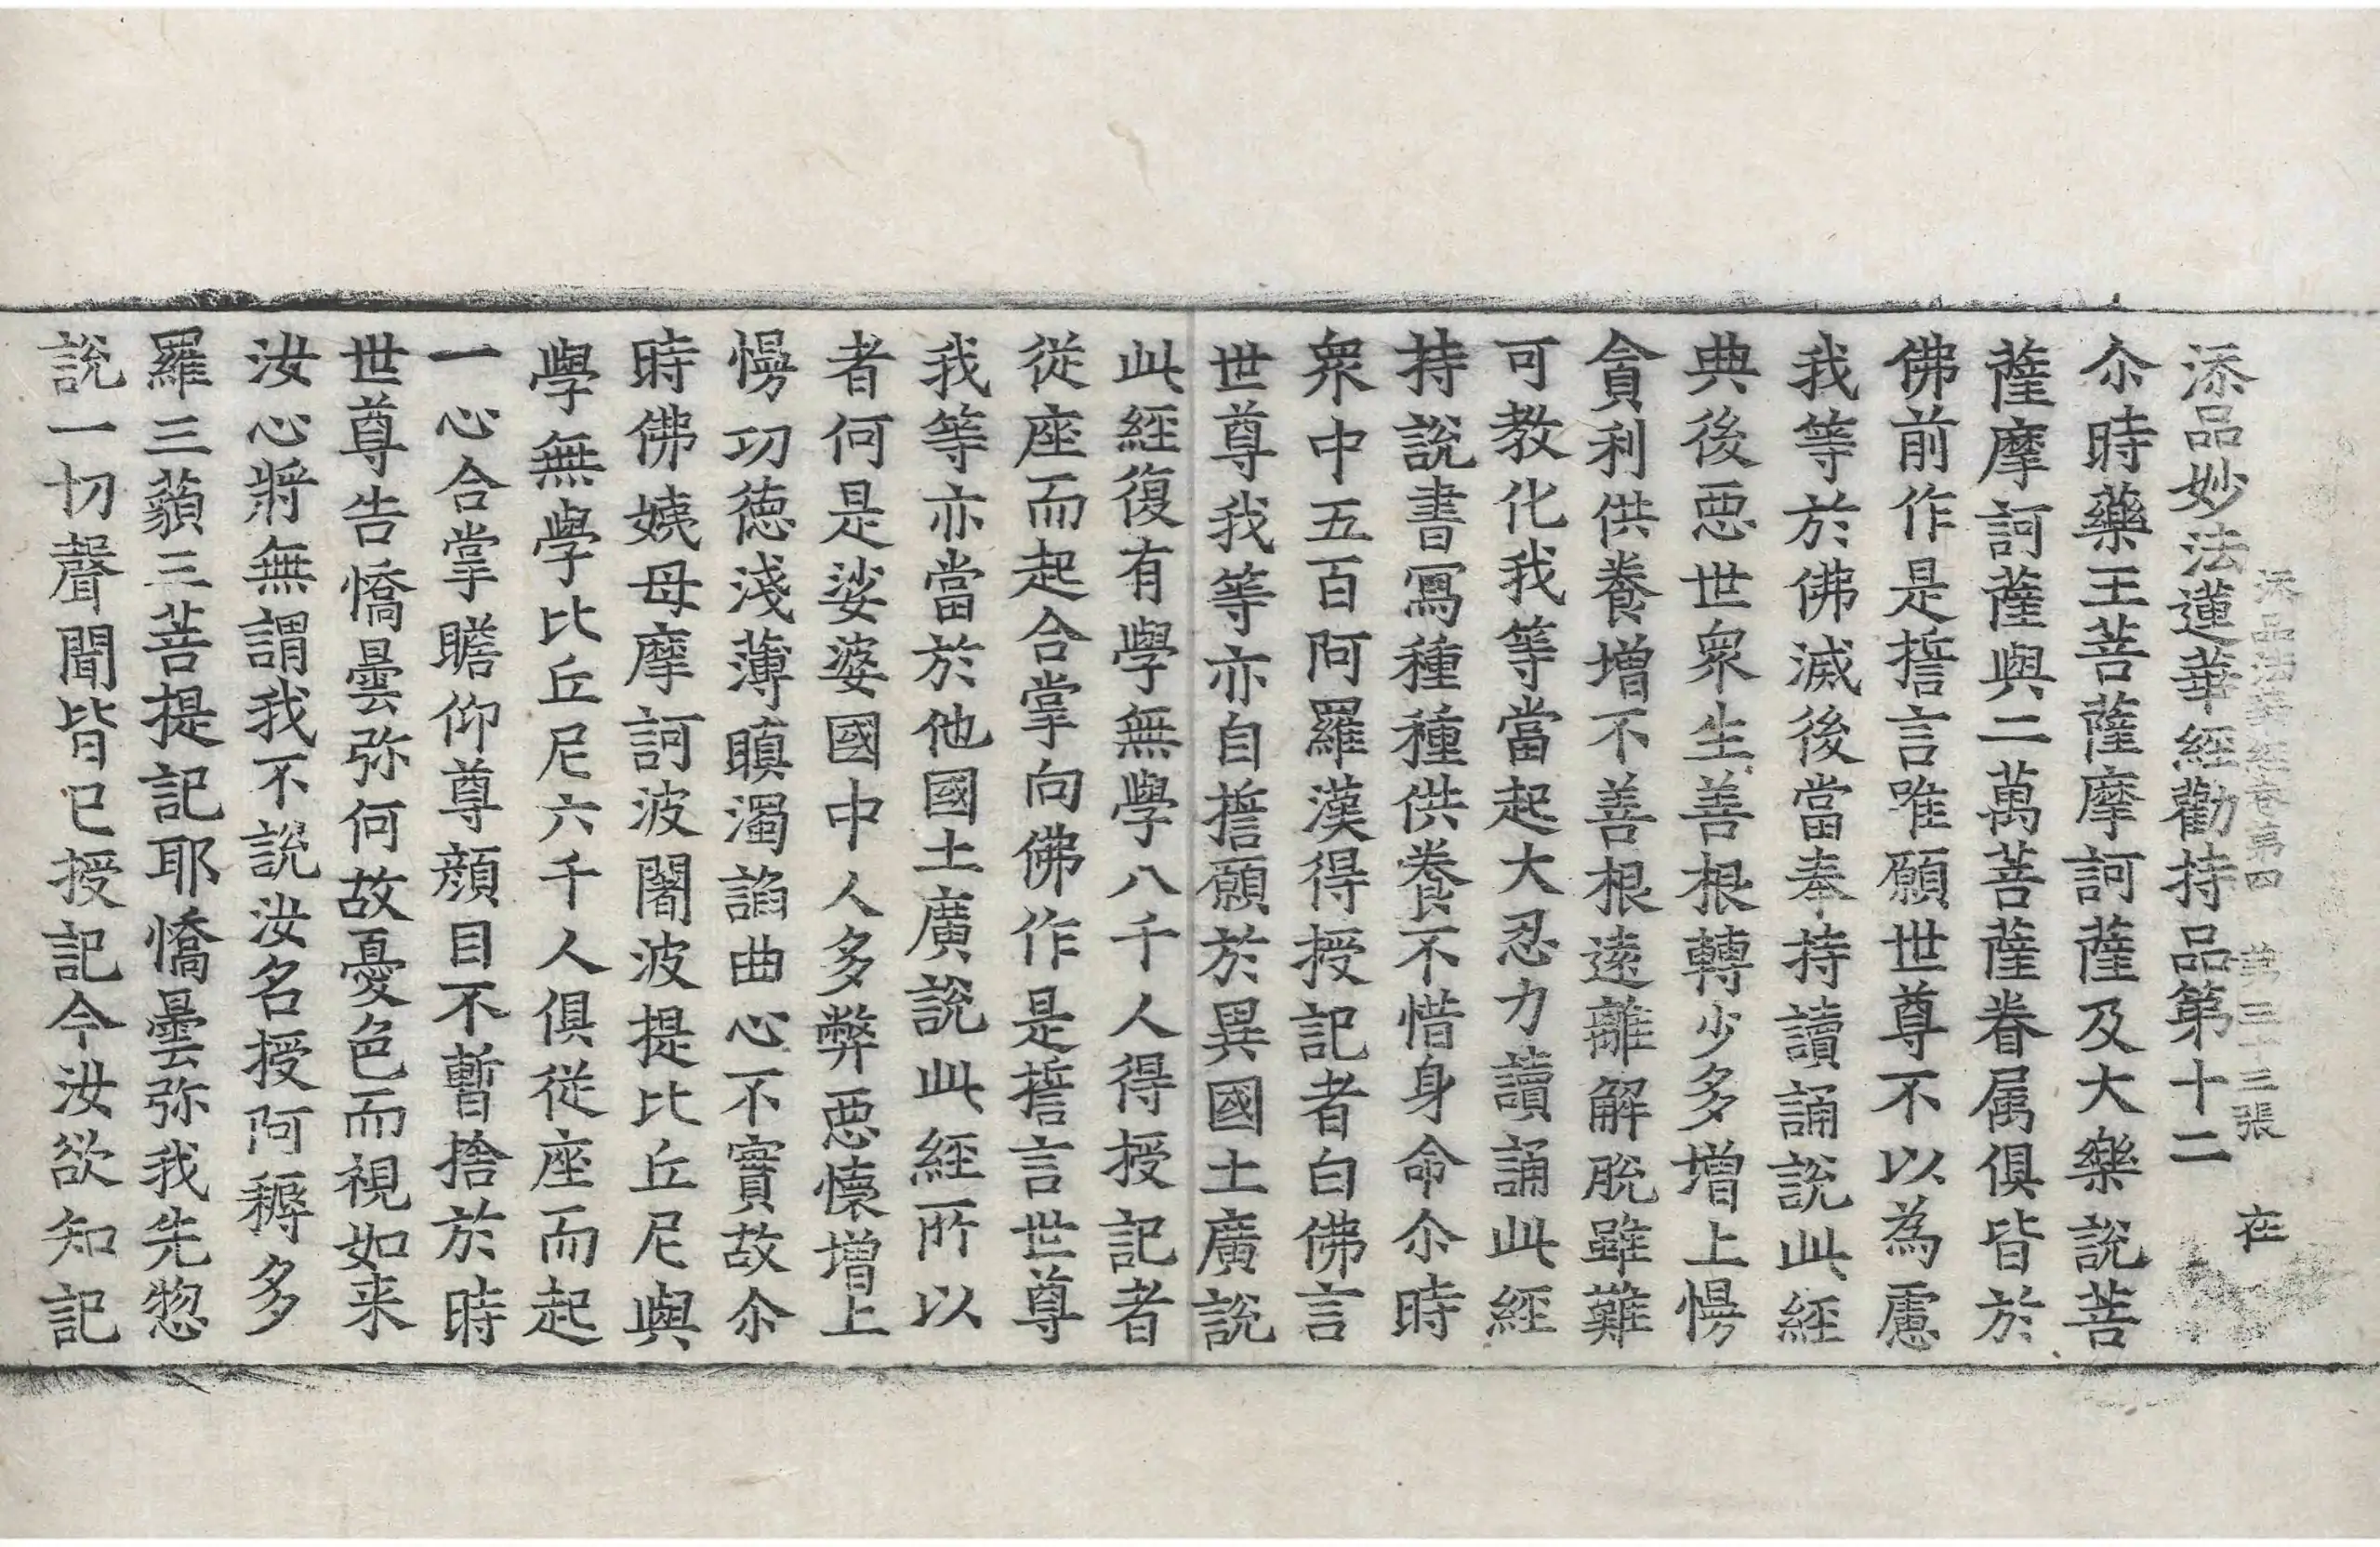 添品法華經卷第四 第三十三張 在
添品妙法蓮華經勸持品第十二
尒時藥王菩薩摩訶薩及大樂說菩
薩摩訶薩與二萬菩薩眷属俱皆於
佛前作是誓言唯願世尊不以為慮
我等於佛滅後當奉持讀誦說此經
典後惡世眾生善根轉少多增上慢
貪利供養增不善根遠離解脫雖難
可教化我等當起大忍力讀誦此經
持說書寫種種供養不惜身命尒時
眾中五百阿羅漢得授記者白佛言
世尊我等亦自誓願於異國土廣說
此經復有學無學八千人得授記者
從座而起合掌向佛作是誓言世尊
我等亦當於他國土廣說此經所以
者何是娑婆國中人多弊惡懷增上
慢功德淺薄瞋濁諂曲心不實故尒
時佛姨母摩訶波闍波提比丘尼與
學無學比丘尼六千人俱從座而起
一心合掌瞻仰尊顏目不暫捨於時
世尊告憍曇弥何故憂色而視如来
汝心將無謂我不說汝名授阿耨多
羅三藐三菩提記耶憍曇弥我先惣
說一切聲聞皆已授記今汝欲知記